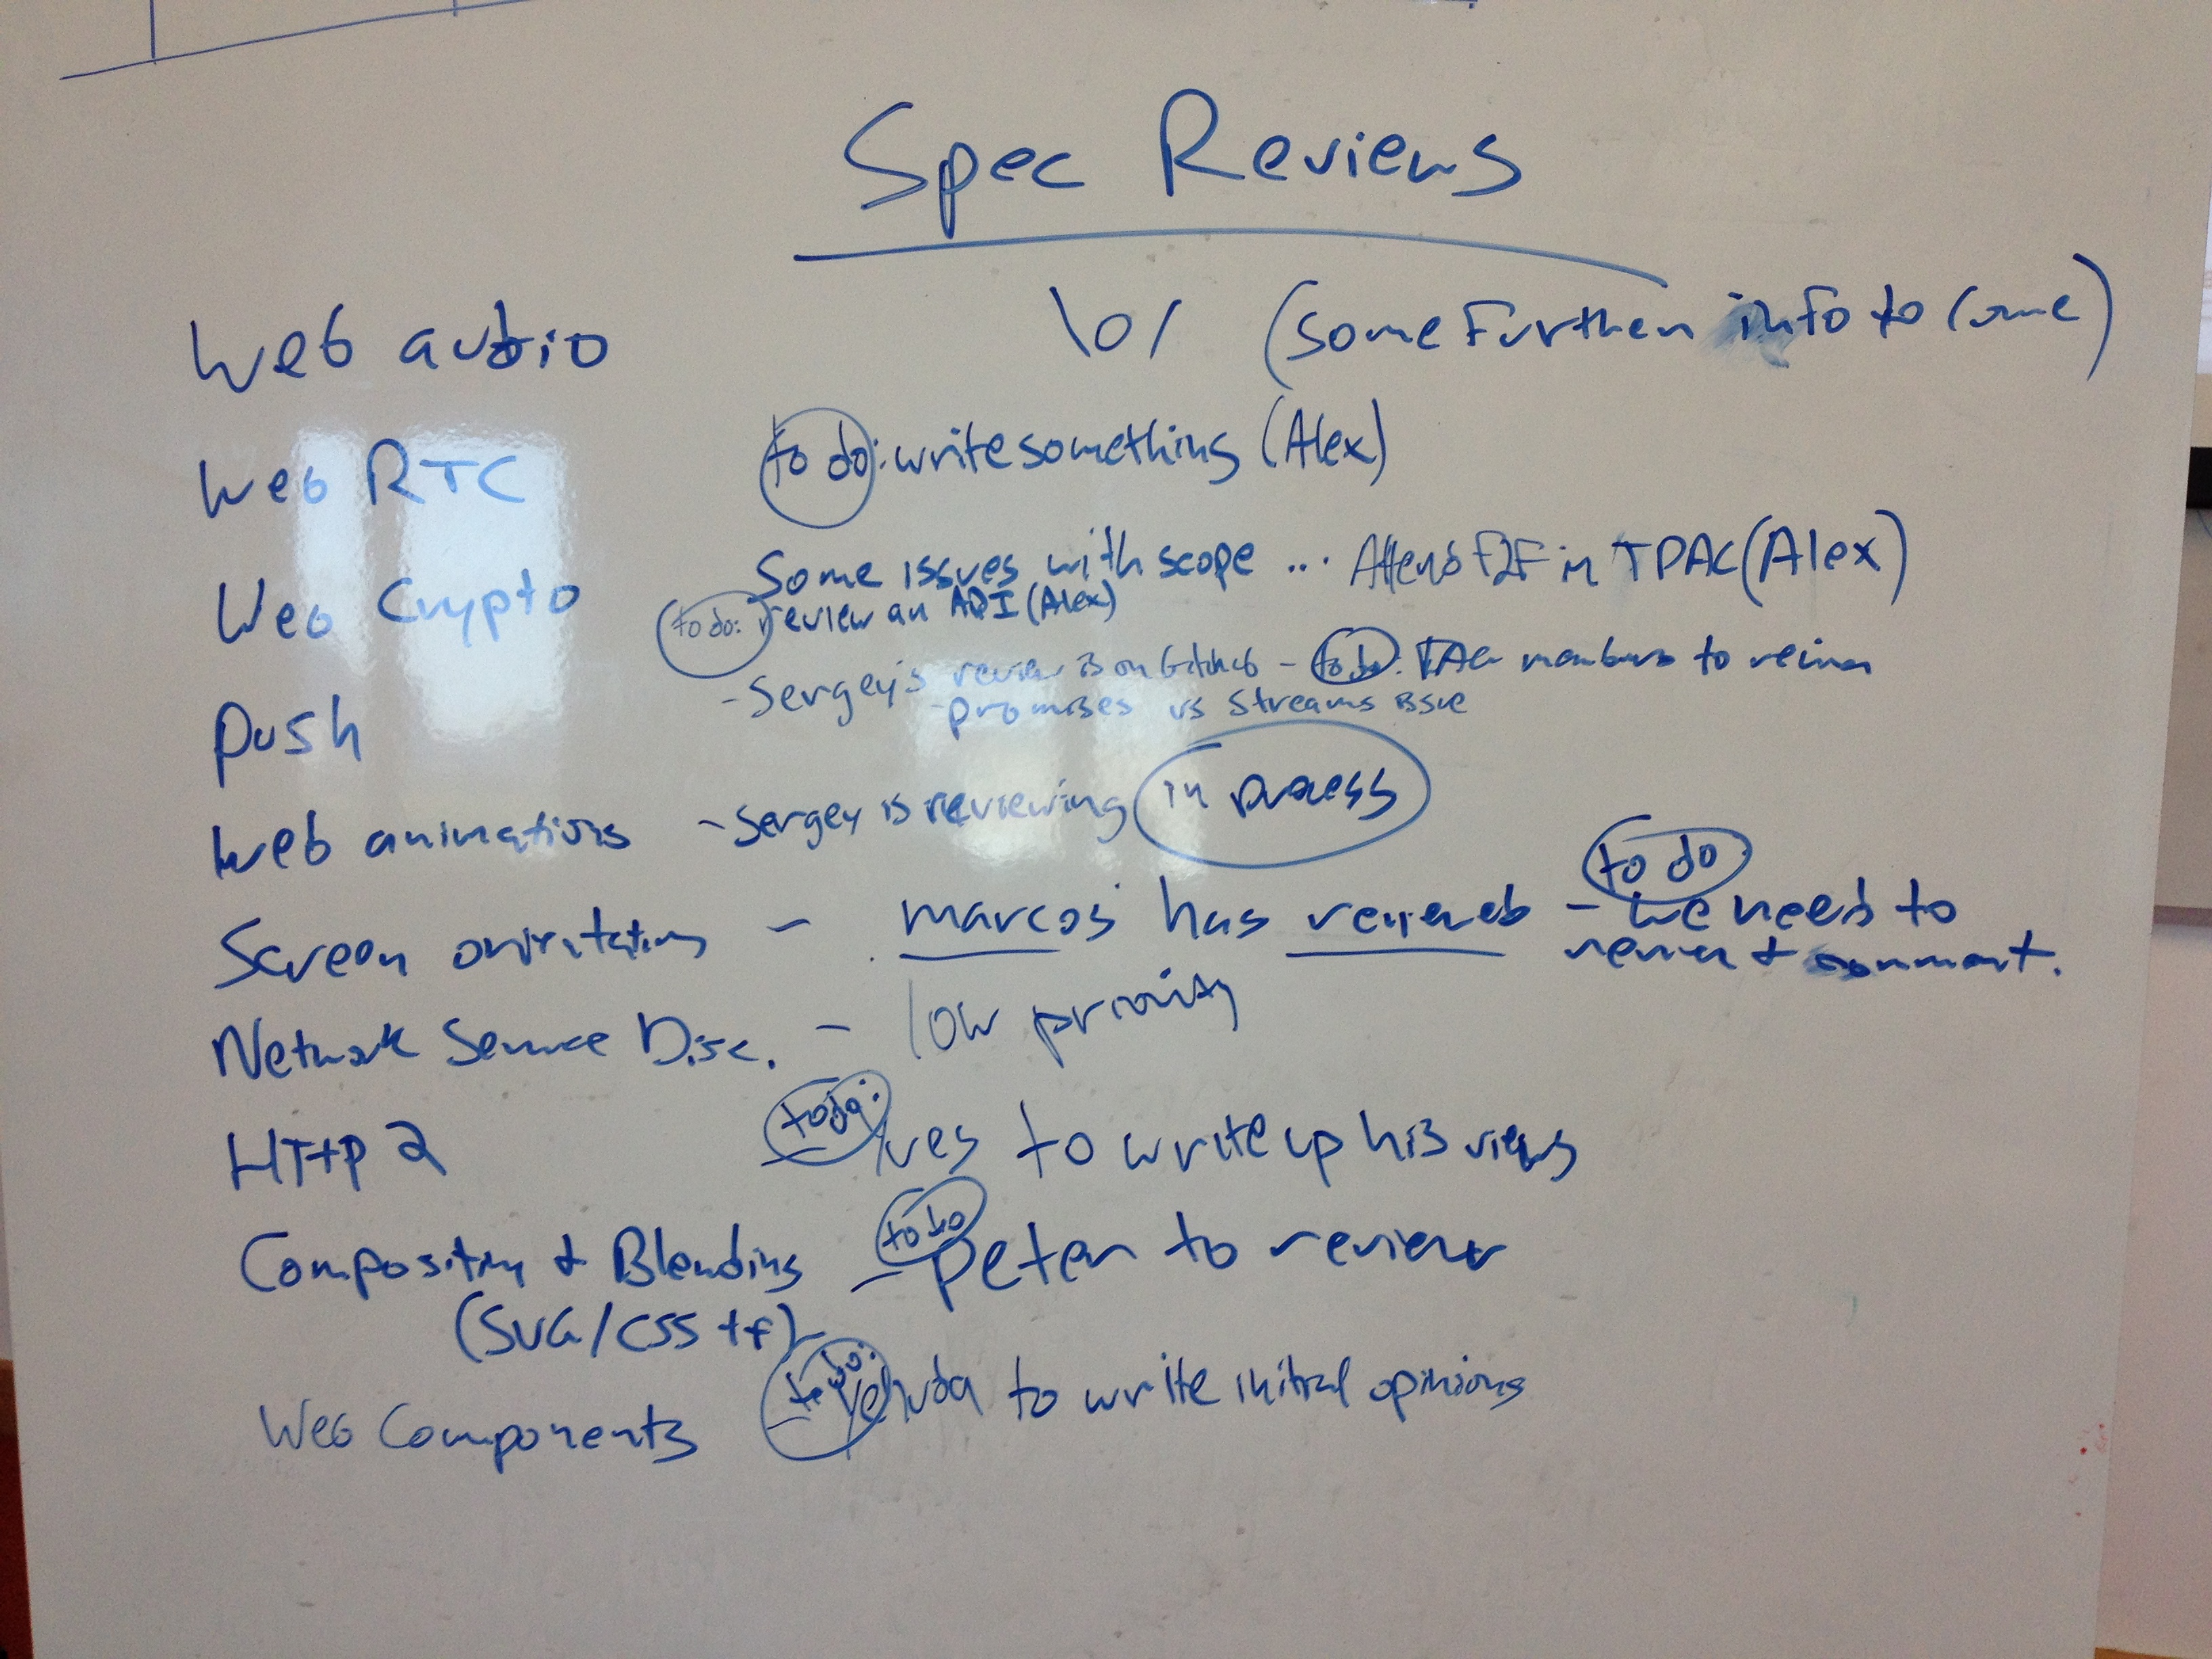 Spec Reviews
Web audio \o/ (some further info to come)
Web RTC to do: write something (Alex)
Web Crypto Some issues with scope ... Attend F2F in TPAC (Alex)
to do: review an API (Alex)
Push - Sergey's review is on Github - to do: TAG members to review
- promises vs Streams issue
Web animations - Sergey is reviewing in process
to do
Screen orientation - marcos has reviewed - we need to
review + comment.
Network Service Disc. - low priority
HTTP 2 to do: Yves to write up his views
Compositing + Blending - to do Peter to review
(SVG/CSS tf)
Web Components - to do: Yehuda to write initial opinions